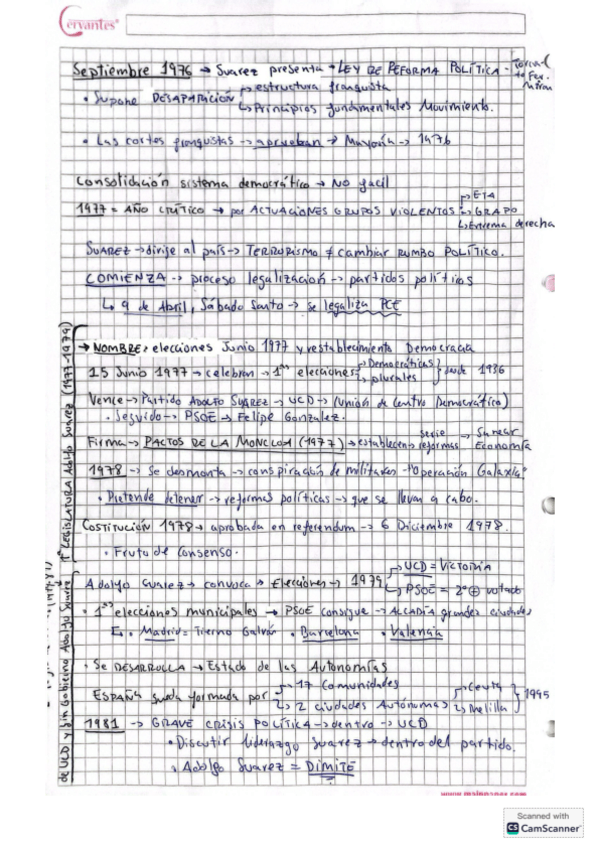 Cervantes
Septiembre 1976 → Suarez presenta → LEY DE REFORMA POLÍTICA - Torcua-
to Fer.
Miran
• Supone DESAPARICIÓN → estructura franquista
↳ Principios fundamentales Movimiento.
• Las cortes franquistas → aprueban → Mayoría → 1976
Consolidación sistema democrático → NO facil
1977 = AÑO CRÍTICO → por ACTUACIONES GRUPOS VIOLENTOS → ETA
→ GRAPO
↳ Extrema derecha
SUAREZ → dirige al país → TERRORISMO ≠ cambiar RUMBO POLÍTICO.
COMIENZA → proceso legalización → partidos políticos
↳ 9 de Abril, Sábado Santo → se legaliza PCE
1ª LEGISLATURA Adolfo Suarez (1977-1979)
→ NOMBRE: elecciones Junio 1977 y restablecimiento Democracia
15 Junio 1977 → celebran → 1ªs elecciones → Democráticas
→ plurales } desde 1936
Vence → Partido ADOLFO SUÁREZ → UCD → (Unión de Centro Democrático)
• Seguido → PSOE → Felipe Gonzalez.
Firma → PACTOS DE LA MONCLOA (1977) → establecen → serie reformas → Sanear
Economía
1978 → Se desmonta → conspiración de militares → "Operación Galaxia"
• Pretende detener → reformas políticas → que se llevan a cabo.
COSTITUCIÓN 1978 → aprobada en referendum → 6 Diciembre 1978.
• Fruto de Consenso.
de UCD y fin Gobierno Adolfo Suarez
Adolfo Suarez → convoca → Elecciones → 1979 → UCD = VICTORIA
↳ PSOE = 2º ⊕ votado
• 1ªs elecciones municipales → PSOE consigue → ALCALDÍA grandes ciudades
• Madrid = Tierno Galván • Barcelona • Valencia
• Se DESARROLLA → Estado de las Autonomías
ESPAÑA queda formada por → 17 Comunidades
→ 2 ciudades Autónomas → Ceuta
→ Melilla } 1995
1981 → GRAVE CRISIS POLÍTICA → dentro → UCD
• Discutir liderazgo Suarez → dentro del partido.
• Adolfo Suarez = DIMITE
Scanned with
CS CamScanner